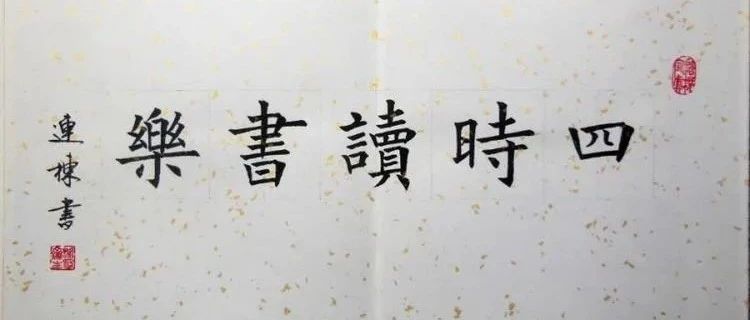 四時讀書樂
連棟書